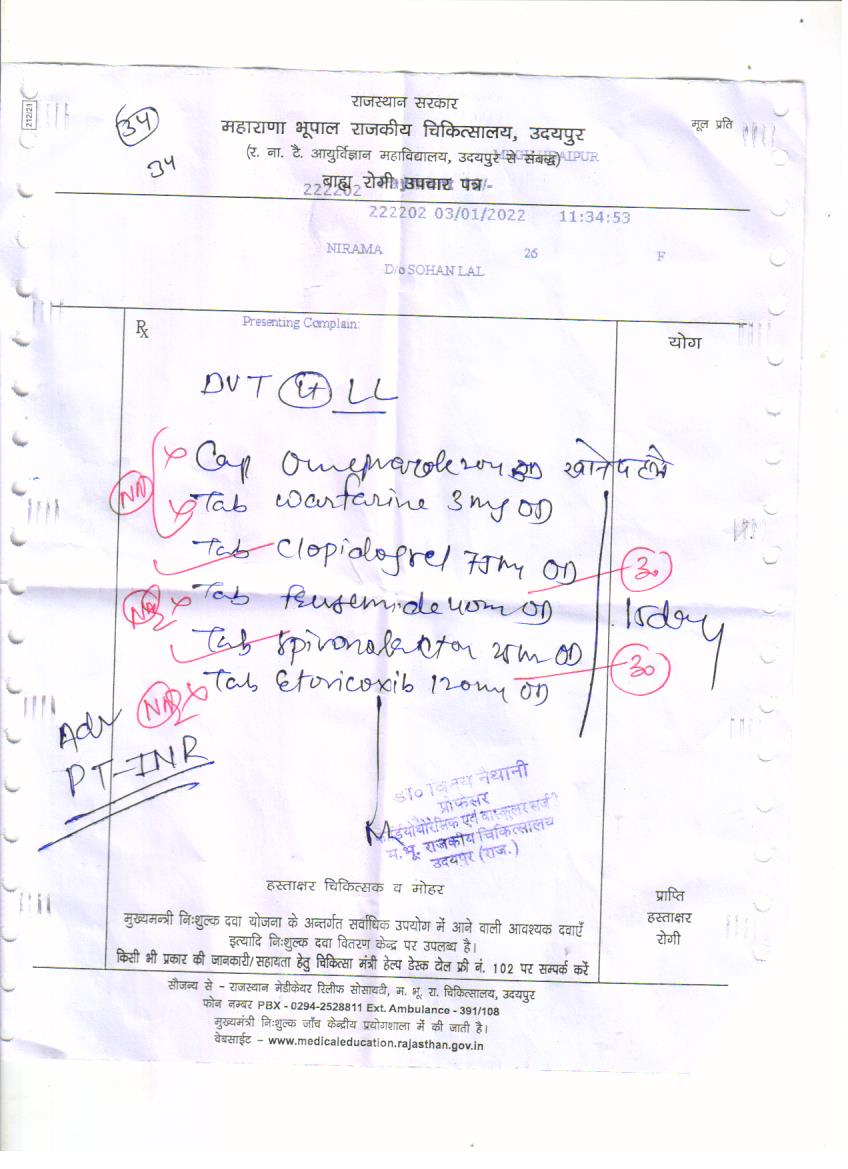 212/21
34
34
राजस्थान सरकार
महाराणा भूपाल राजकीय चिकित्सालय, उदयपुर
मूल प्रति
(र. ना. टै. आयुर्विज्ञान महाविद्यालय, उदयपुर से संबद्ध)
बाह्य रोगी उपचार पत्र
222202
222202 03/01/2022 11:34:53
NIRAMA 26 F
D/o SOHAN LAL
Rx
Presenting Complain:
योग
DVT LL
Cap Omeprazole 20mg OD
NA Tab Warfarine 3mg OD
Tab Clopidogrel 75mg OD 30
Tab Frusemide 40mg OD 15day
Tab Spironolacton 25mg OD 30
Tab Etoricoxib 120mg OD
Adv
PT-INR
नैथानी
प्रोफेसर
म.भू. राजकीय चिकित्सालय
उदयपुर (राज.)
हस्ताक्षर चिकित्सक व मोहर
प्राप्ति
हस्ताक्षर
रोगी
मुख्यमन्त्री निःशुल्क दवा योजना के अन्तर्गत सर्वाधिक उपयोग में आने वाली आवश्यक दवाएँ
इत्यादि निःशुल्क दवा वितरण केन्द्र पर उपलब्ध है।
किसी भी प्रकार की जानकारी/सहायता हेतु चिकित्सा मंत्री हेल्प डेस्क टोल फ्री नं. 102 पर सम्पर्क करें
सौजन्य से - राजस्थान मेडीकेयर रिलीफ सोसायटी, म. भू. रा. चिकित्सालय, उदयपुर
फोन नम्बर PBX - 0294-2528811 Ext. Ambulance - 391/108
मुख्यमंत्री निःशुल्क जाँच केन्द्रीय प्रयोगशाला में की जाती है।
वेबसाईट - www.medicaleducation.rajasthan.gov.in